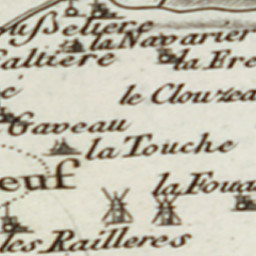 oußeliere
la Navarier
altiere
la Fre
é
le Clouzea
Gaveau
la Touche
euf
la Foua
les Railleres